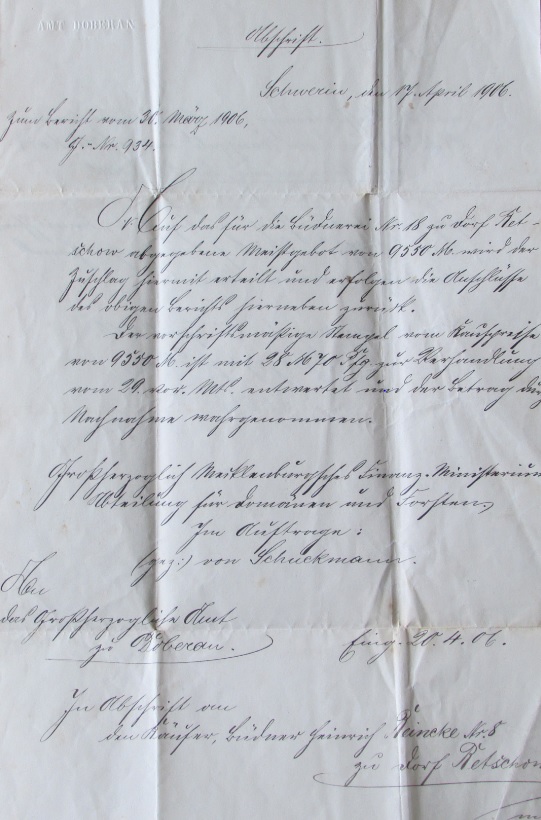 AMT DOBERAN
Abschrift.
Schwerin, den 17. April 1906.
Zum Bericht vom 30. März 1906,
G.-Nr. 934.
Auf das für die Büdnerei Nr. 18 zu Dorf Ret-
schow abgegebene Meistgebot von 9550 M. wird der
Zuschlag hiermit erteilt und erfolgen die Anschlüsse
des obigen Berichts hierneben zurück.
Der vorschriftsmäßige Stempel vom Kaufpreise
von 9550 M. ist mit 28 M 70 Pfg zur Verhandlung
vom 29. vor. Mts. entwertet und der Betrag durch
Nachnahme wahrgenommen.
Großherzoglich Mecklenburgsches Finanz-Ministerium
Abteilung für Domänen und Forsten,
Im Auftrage:
(gez:) von Schuckmann.
An
das Großherzogliche Amt
zu Doberan.
Eing. 20.4.06.
In Abschrift an
den Käufer, Büdner Heinrich Reincke Nr. 8
zu Dorf Retschow